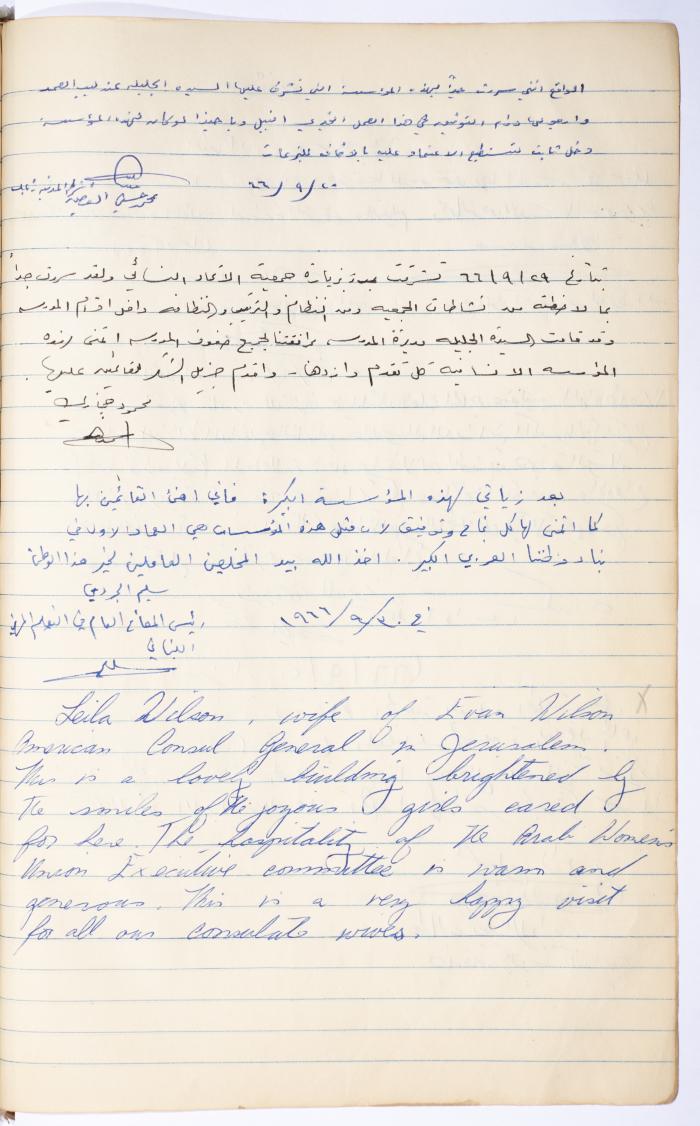 الواقع انني سررت جداً بهذه المؤسسة التي تشرف عليها السيده الجليله عندليب العمد
وارجو لها دوام التوفيق في هذا العمل الخيري النبيل ويا حبذا لو كان لهذه المؤسسة
دخل ثابت تستطيع الاعتماد عليه بالاضافه للتبرعات
٦٦/٩/٢٠
بتاريخ ٦٦/٩/٢٩ تشرفت بزيارة جمعية الاتحاد النسائي ولقد سررت جداً
بما لاحظته من نشاطات الجمعيه ومن النظام والترتيب والنظافه داخل اقسام المدرسه
وقد قامت السيدة الجليله مديرة المدرسه بمرافقتنا لجميع صفوف المدرسه اتمنى لهذه
المؤسسه الانسانية كل تقدم وازدهار واقدم جزيل الشكر للقائمين عليها.
محمود
بعد زيارتي لهذه المؤسسة الكبيرة فاني اهنئ القائمين بها
كما اتمنى لها كل نجاح وتوفيق لان مثل هذه المؤسسات هي العماد الاول في
بناء وطننا العربي الكبير. اخذ الله بيد المخلصين العاملين لخير هذا الوطن
سليم
في ١٩٦٦/٩/٣٠
رئيس العام في التعليم المهني
اللبناني
Leila Wilson, wife of Evan Wilson
American Consul General in Jerusalem.
This is a lovely building brightened by
the smiles of the joyous girls cared
for here. The hospitality of the Arab Women's
Union Executive committee is warm and
generous. This is a very happy visit
for all our consulate wives.